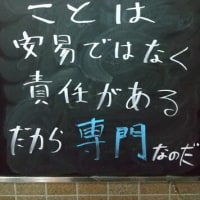 ことは
安易ではなく
責任がある
だから専門なのだ